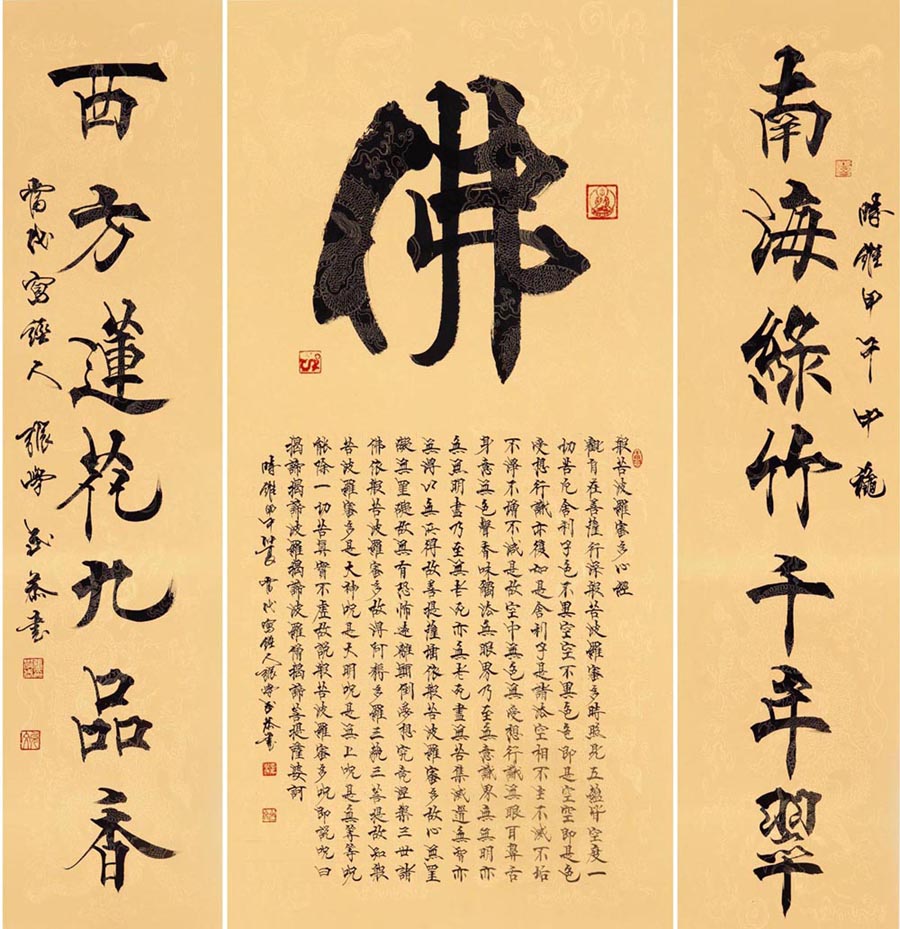 時維甲午中龝
南海綠竹千年翠
佛
般若波羅蜜多心經
觀自在菩薩行深般若波羅蜜多時照見五蘊皆空度一
切苦厄舍利子色不異空空不異色色即是空空即是色
受想行識亦復如是舍利子是諸法空相不生不滅不垢
不淨不增不減是故空中無色無受想行識無眼耳鼻舌
身意無色聲香味觸法無眼界乃至無意識界無無明亦
無無明盡乃至無老死亦無老死盡無苦集滅道無智亦
無得以無所得故菩提薩埵依般若波羅蜜多故心無罣
礙無罣礙故無有恐怖遠離顛倒夢想究竟涅槃三世諸
佛依般若波羅蜜多故得阿耨多羅三藐三菩提故知般
若波羅蜜多是大神咒是大明咒是無上咒是無等等咒
能除一切苦真實不虛故說般若波羅蜜多咒即說咒曰
揭諦揭諦波羅揭諦波羅僧揭諦菩提薩婆訶
時維甲午當代寫經人張學武恭書
西方蓮花九品香
當代寫經人張學武恭書